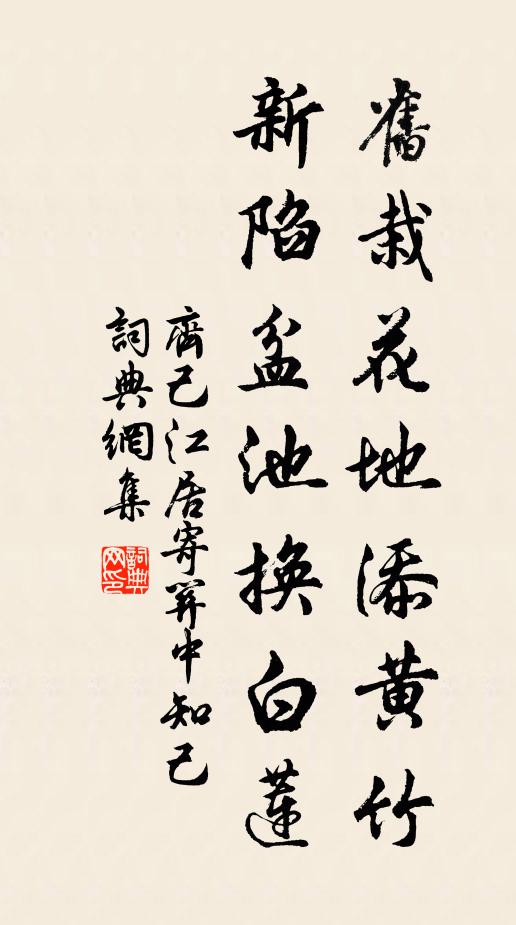 舊栽花地添黄竹
新陷盆池換白蓮
齊己江居寄關中知己
詞典網集
詞典網印